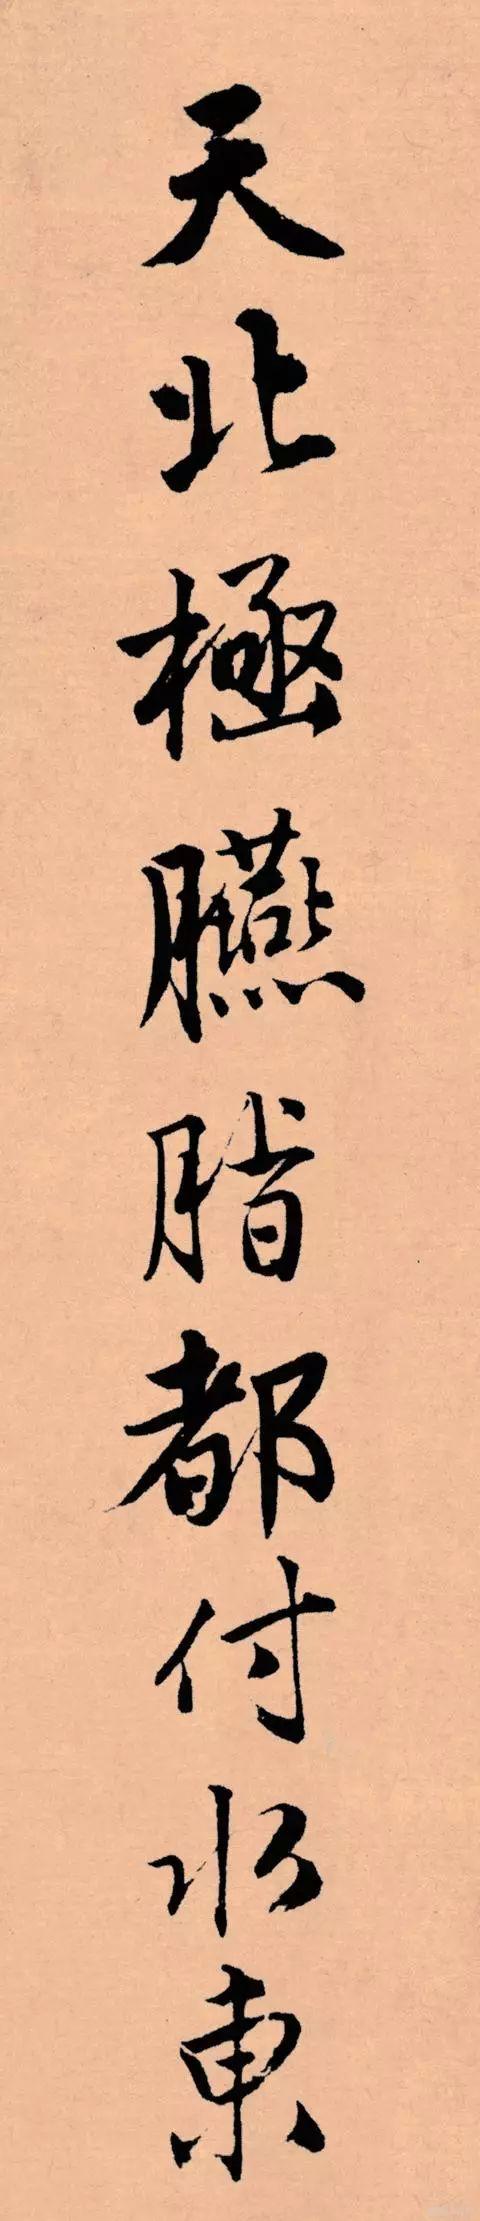 天北極臙脂都付水東